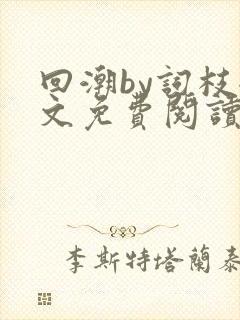 回潮by詞枝
文免費閱讀
李斯特塔蘭泰